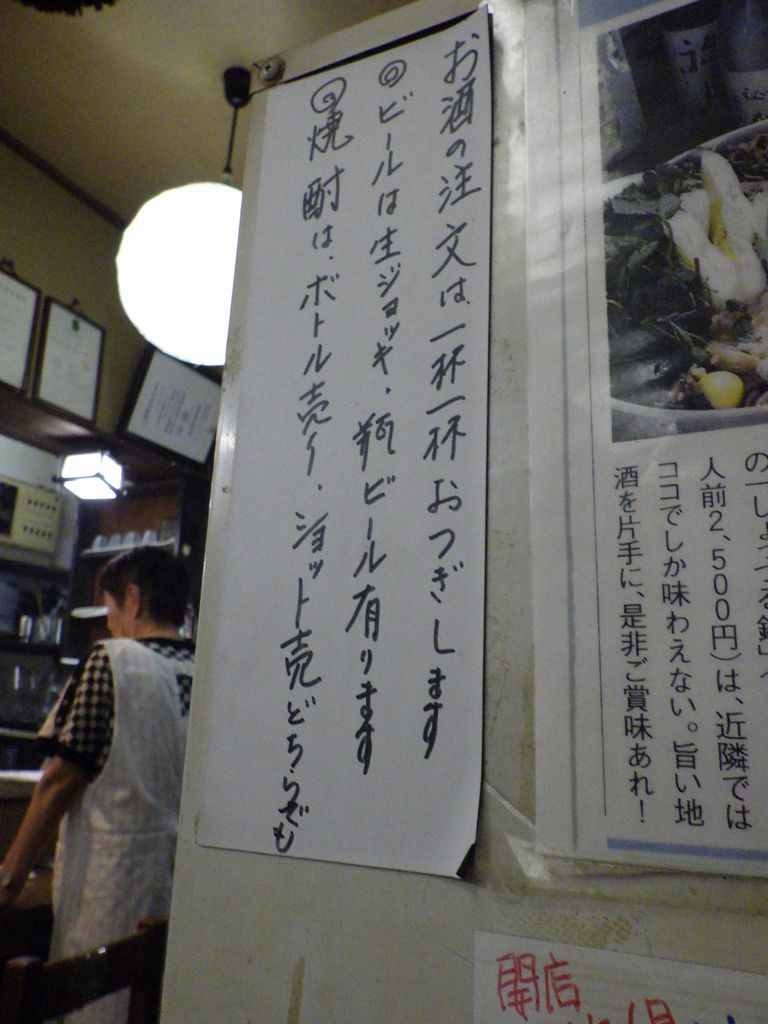 お酒の注文は一杯一杯おつぎします
◎ビールは生ジョッキ・瓶ビール有ります
◎焼酎は、ボトル売り、ショット売どちらでも
人前2、500円)は、近隣では
ココでしか味わえない。旨い地
酒を片手に、是非ご賞味あれ!
開店